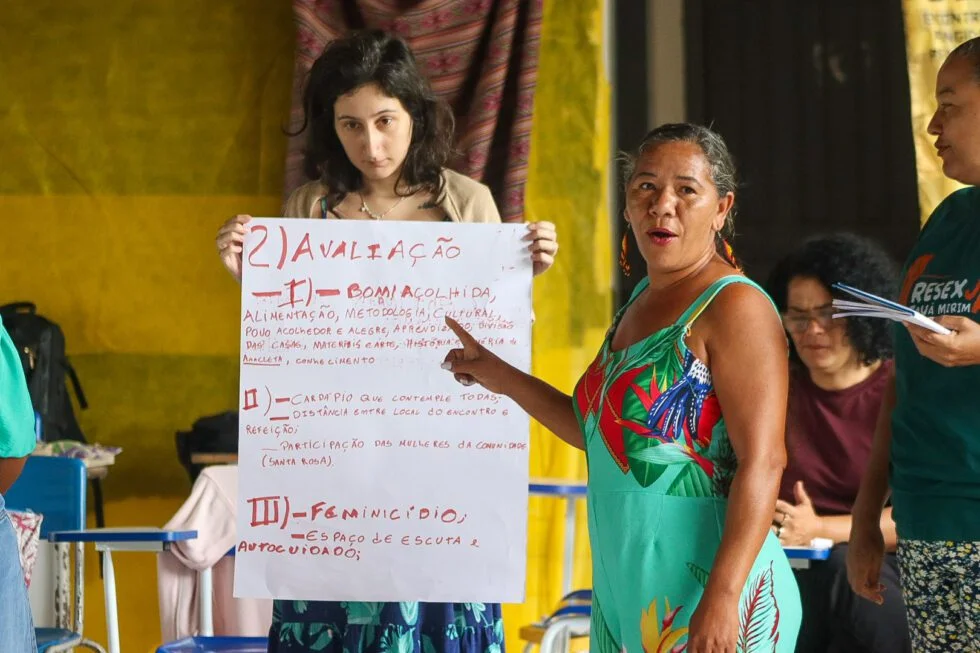 2) AVALIAÇÃO
I) - BOM/AÇOLHIDA,
ALIMENTAÇÃO, METODOLOGIA, CULTURAL,
POVO ACOLHEDOR E ALEGRE, APRENDIZADO, DIVISÃO
DAS CASAS, MATERIAIS E ARTE, HISTÓRIA DE
ANACLETA, CONHECIMENTO
II) - CARDÁPIO QUE CONTEMPLE TODAS;
- DISTÂNCIA ENTRE LOCAL DO ENCONTRO E
REFEIÇÃO;
- PARTICIPAÇÃO DAS MULHERES DA COMUNIDADE
(SANTA ROSA).
III) - FEMINICÍDIO;
- ESPAÇO DE ESCUTA E
AUTOCUIDADO;
RESEX
MIRIM